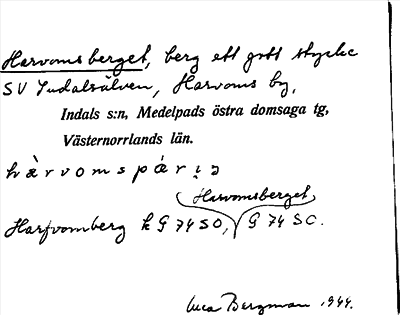 Harvomsberget, berg ett gott stycke
SV Indalsälven, Harvoms by,
Indals s:n, Medelpads östra domsaga tg,
Västernorrlands län.
hàrvomspárịɔ
Harvomsberget
Harfvomberg k G 74 SO, G 74 SC.
Bergman 1944.